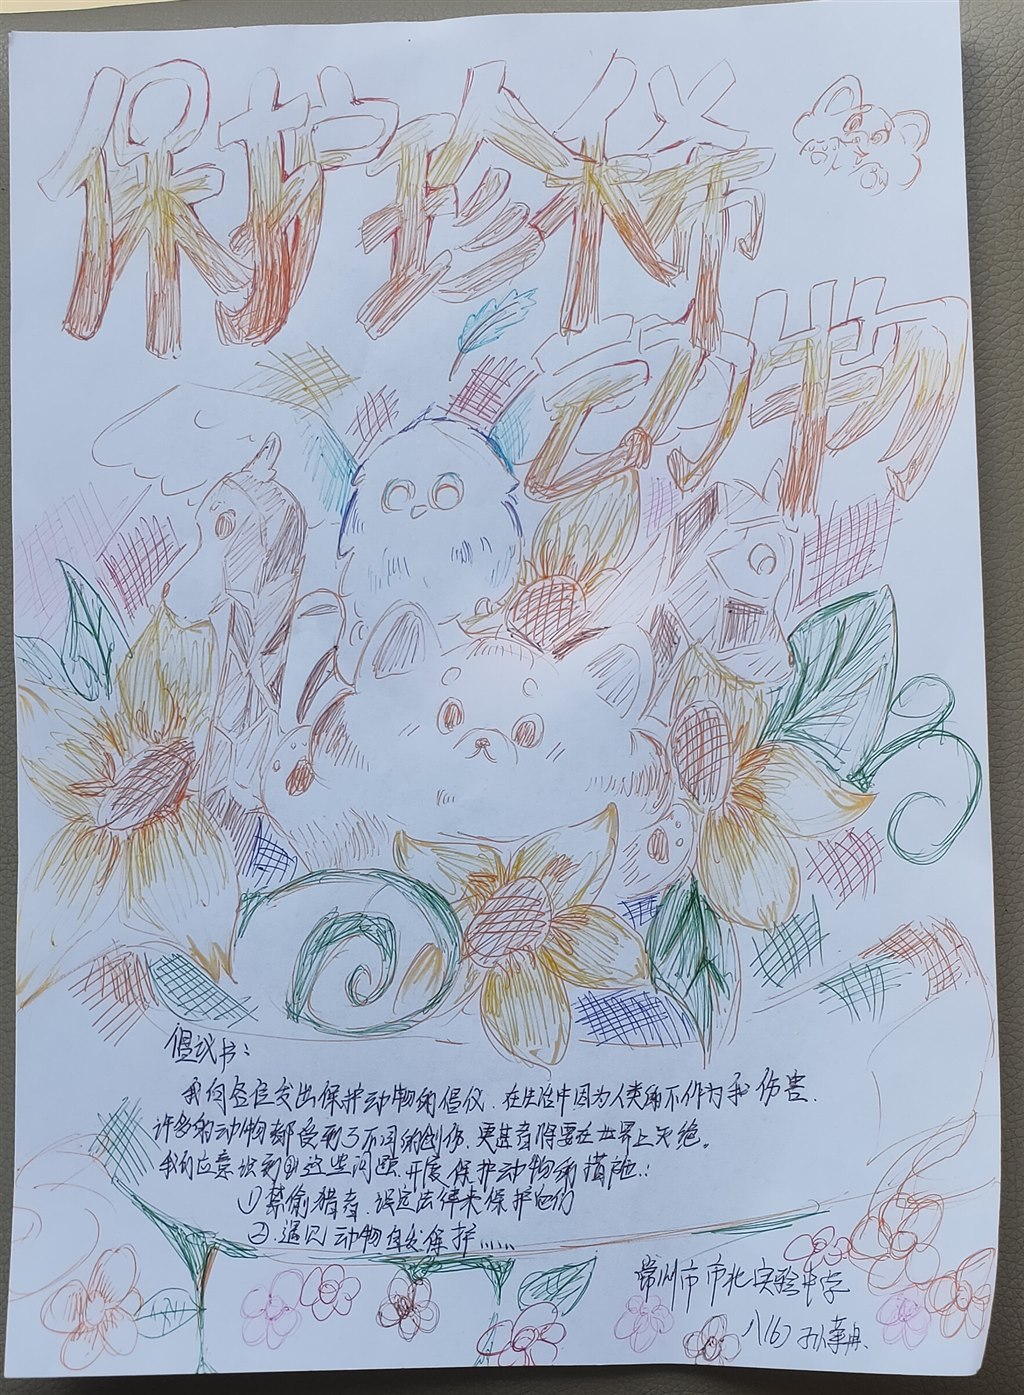 保护珍稀
动物
倡议书：
我向全信发出保护动物的倡仪.在生活中因为人类的不作为和伤害.
许多的动物都受到了不同的创伤.更甚者将要在世界上灭绝。
我们应意识到这些问题.开展保护动物的措施:：
①禁偷猎者.设定法律来保护它们
②.遇见动物自发保护……
常州市市北实验中学
八(6)